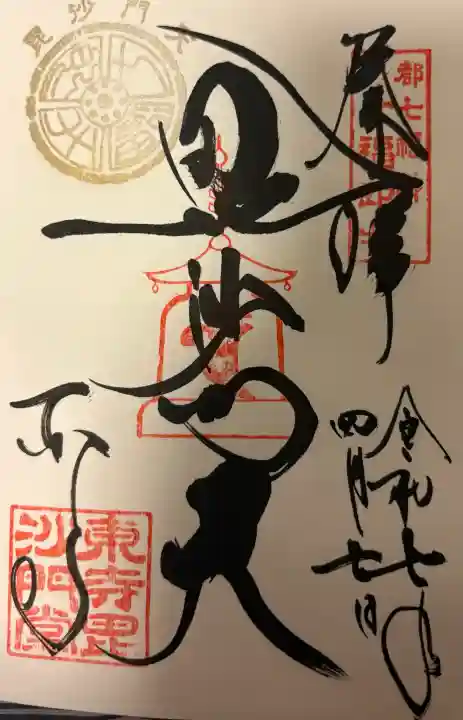 奉拝
都七福神
令和七年
四月七日
毘沙門天
毘沙門天
東寺
東寺毘
沙門堂